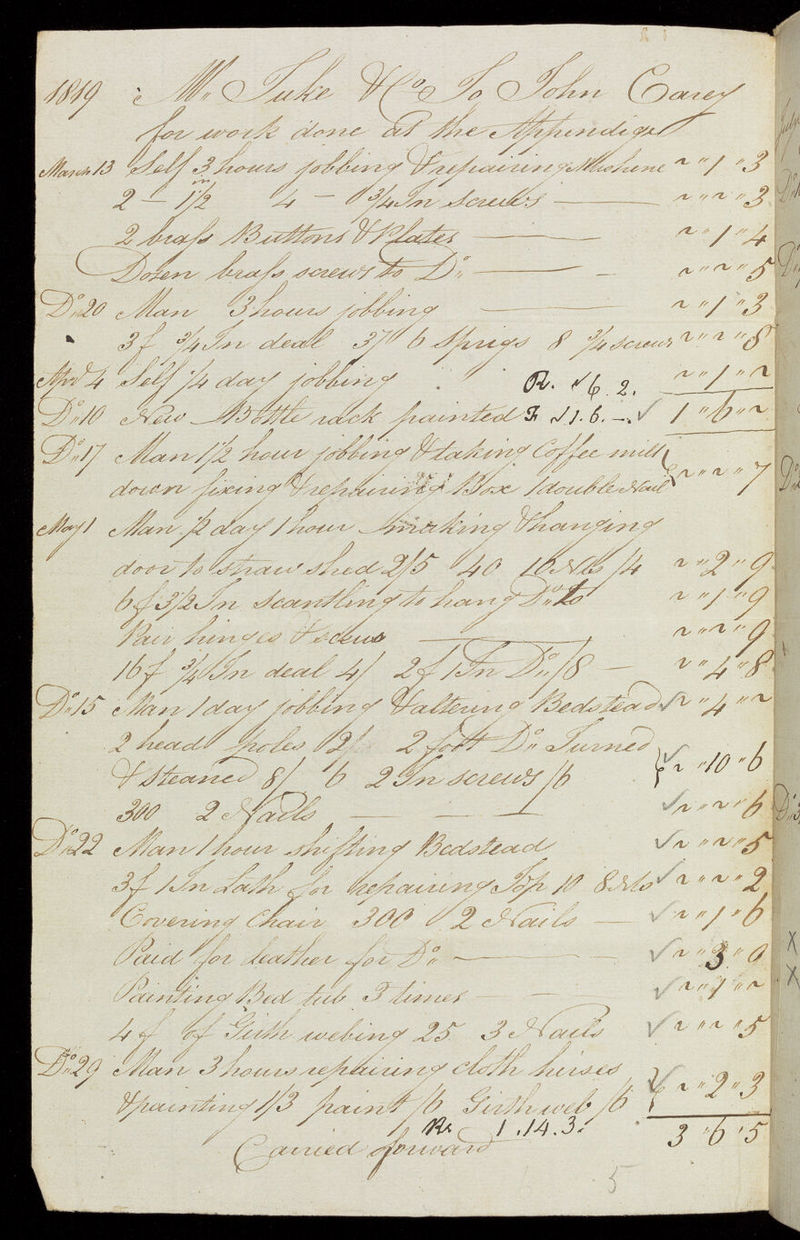 1819 Mr Tuke & Co To John Carey
for work done at the Appendage
March 13 Self 3 hours jobbing & repairing Mashine ~ " 1 " 3
2 - 1 1/2 in 4 - 3/4 In screws ~ " ~ " 3
2 brass Buttons & Plates ~ " 1 " 4
Dozen brass screws to Do ~ " ~ " 5
Do 20 Man 3 hours jobbing ~ " 1 " 3
3 f 3/4 In deal 37 6 Sprigs 8 3/4 screws ~ " ~ " 8
Aprl 4 Self 1/4 day jobbing R. √ 6. 2. ~ " 1 " ~
Do 10 New Bottle rack painted F √ 1. 6. -. √ 1 " 6 " ~
Do 17 Man 1 1/2 hour jobbing & taking Coffee mill
down fixing & repairing Box 1 double Nail } ~ " ~ " 7
May 1 Man 1/2 day 1 hour making & hanging
door to straw shed 2/5 40 10 Nls /4 ~ " 2 " 9
6 f 3 1/2 In scantling to hang Do to ~ " 1 " 9
Pair hinges & screws ~ " ~ " 9
16 f 3/4 In deal 4/ 2 f 1 In Do /8 ~ " 4 " 8
Do 15 Man 1 day jobbing & altering Bedstead √ ~ " 4 " ~
2 head poles 2/ 2 foot Do Turned
& steaned 8/ 6 2 In screws /6 } √ ~ " 10 " 6
300 2 Nails √ ~ " ~ " 6
Do 22 Man 1 hour shifting Bedstead √ ~ " ~ " 5
3 f 1 In Lath for repairing Top 10 8 Nls √ ~ " ~ " 2
Covering Chair 300 2 Nails √ ~ " 1 " 6
Paid for leather for Do √ ~ " 3 " 0
Painting Bed tub 3 times √ ~ " 1 " ~
4 f of Girth webing 25 3 Nails √ ~ " ~ " 5
Do 29 Man 3 hours repairing cloth hirses
& painting 1/3 paint /6 Girth web /6 } √ ~ " 2 " 3
Re 1. 14. 3. 3 " 6 " 5
Carried forward
5